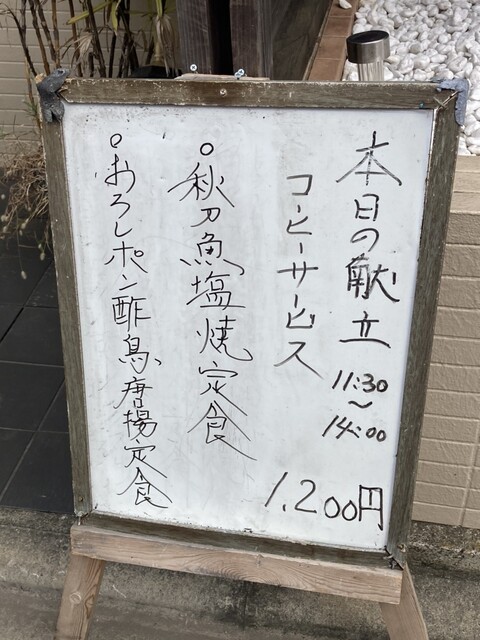 本日の献立
11:30
〜
14:00
コーヒーサービス
1,200円
○秋刀魚塩焼定食
○おろしポン酢鳥唐揚定食